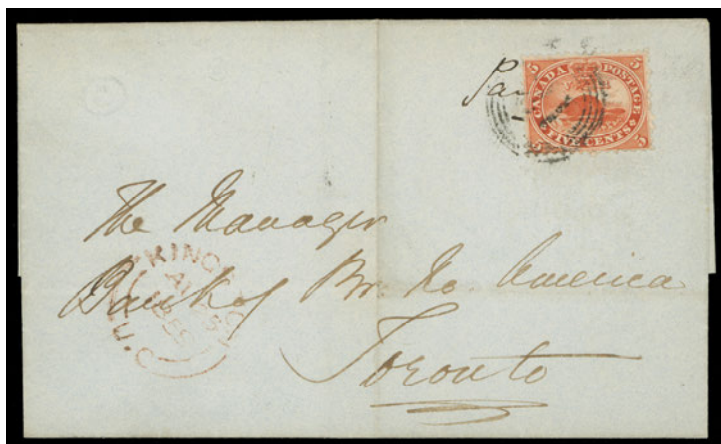 CANADA POSTAGE
5 5
FIVE CENTS
5 5
The Manager
Bank of Br. No. America
Toronto
U.C.